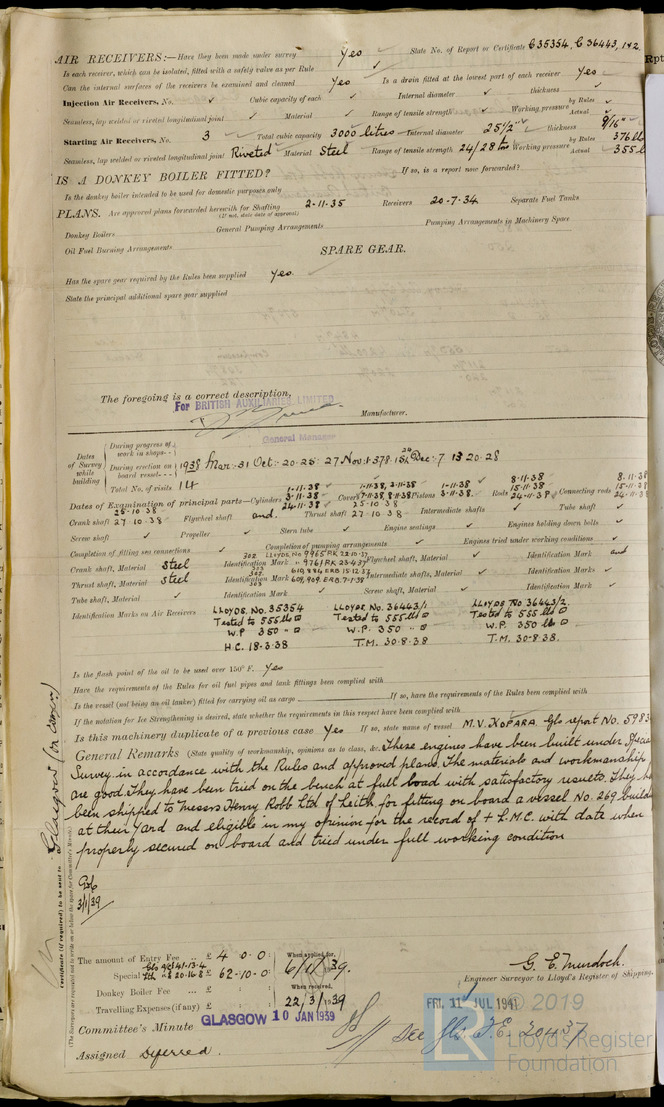 AIR RECEIVERS:—Have they been made under survey Yes State No. of Report or Certificate C35354, C36443, 1+2.
Is each receiver, which can be isolated, fitted with a safety valve as per Rule ✓
Can the internal surfaces of the receivers be examined and cleaned Yes Is a drain fitted at the lowest part of each receiver Yes
Injection Air Receivers, No. ✓ Cubic capacity of each ✓ Internal diameter ✓ thickness ✓
Seamless, lap welded or riveted longitudinal joint ✓ Material ✓ Range of tensile strength ✓ Working pressure by Rules ✓ Actual ✓
Starting Air Receivers, No. 3 Total cubic capacity 3000 litres Internal diameter 25 1/2" thickness 9/16"
Seamless, lap welded or riveted longitudinal joint Riveted Material Steel Range of tensile strength 24/28 tns Working pressure by Rules 376 lb Actual 355 l
IS A DONKEY BOILER FITTED? If so, is a report now forwarded?
Is the donkey boiler intended to be used for domestic purposes only
PLANS. Are approved plans forwarded herewith for Shafting 2-11-35 Receivers 20-7-34 Separate Fuel Tanks
(If not, state date of approval)
Donkey Boilers General Pumping Arrangements Pumping Arrangements in Machinery Space
Oil Fuel Burning Arrangements
SPARE GEAR.
Has the spare gear required by the Rules been supplied Yes.
State the principal additional spare gear supplied
The foregoing is a correct description,
For BRITISH AUXILIARIES LIMITED
Manufacturer.
General Manager
Dates of Survey while building
During progress of work in shops - -
During erection on board vessel - - -
1938 Mar:-31 Oct:-20-25-27 Nov:1-3-7-8-15-24 Dec:-7 13 20-28
Total No. of visits 14
Dates of Examination of principal parts—Cylinders 1-11-38 3-11-38 24-11-38 Covers 1-11-38, 2-11-38 7-11-38, 8-11-38 Pistons 1-11-38 3-11-38 Rods 8-11-38 15-11-38 24-11-38 Connecting rods 8-11-38 15-11-38 24-11-38
Crank shaft 25-10-38 27-10-38 Flywheel shaft and. Thrust shaft 25-10-38 27-10-38 Intermediate shafts ✓ Tube shaft ✓
Screw shaft ✓ Propeller ✓ Stern tube ✓ Engine seatings ✓ Engines holding down bolts ✓
Completion of fitting sea connections ✓ Completion of pumping arrangements ✓ Engines tried under working conditions ✓
Crank shaft, Material Steel Identification Mark 302 LLOYDS. No 9965 RK 22-10-37 303 " 9761 RK 23-4-37 Flywheel shaft, Material ✓ Identification Mark and
Thrust shaft, Material Steel Identification Mark 302 610,984 ERB 15-12-37 303 609,909. ERB. 7-1-38 Intermediate shafts, Material ✓ Identification Marks ✓
Tube shaft, Material ✓ Identification Mark ✓ Screw shaft, Material ✓ Identification Mark ✓
Identification Marks on Air Receivers LLOYDS. No. 35354 LLOYDS No. 36443/1 LLOYDS No 36443/2
Tested to 555 lbs Tested to 555 lbs Tested to 555 lbs
W.P 350 " W.P. 350 " W.P. 350 lb
H.C. 18-3-38 T.M. 30-8-38 T.M. 30-8-38.
Is the flash point of the oil to be used over 150° F. Yes
Have the requirements of the Rules for oil fuel pipes and tank fittings been complied with
Is the vessel (not being an oil tanker) fitted for carrying oil as cargo If so, have the requirements of the Rules been complied with
If the notation for Ice Strengthening is desired, state whether the requirements in this respect have been complied with
Is this machinery duplicate of a previous case Yes If so, state name of vessel M.V. KOPARA. Gls report No. 5983
General Remarks (State quality of workmanship, opinions as to class, &c. These engines have been built under Special
Survey in accordance with the Rules and approved plans. The materials and workmanship
are good. They have been tried on the bench at full load with satisfactory results. They ha
been shipped to Messrs Henry Robb Ltd. of Leith for fitting on board a vessel No. 269 buildi
at their Yard and eligible in my opinion for the record of + L.M.C. with date when
properly secured on board and tried under full working condition
3/1/39
Glasgow (for Comm)
Certificate (if required) to be sent to
(The Surveyors are requested not to write on or below the space for Committee's Minute.)
The amount of Entry Fee .. £ 4-0-0: When applied for,
Special £ 62-10-0: 6/1/1939.
Donkey Boiler Fee ... £ : : When received,
Travelling Expenses (if any) £ : : 22/3/1939
G. E. Murdoch.
Engineer Surveyor to Lloyd's Register of Shipping.
Committee's Minute GLASGOW 10 JAN 1939
FRI. 11 JUL 1941
Assigned Deferred.
See Gls. F.E. 20437
© 2019
Lloyd's Register
Foundation
Rpt